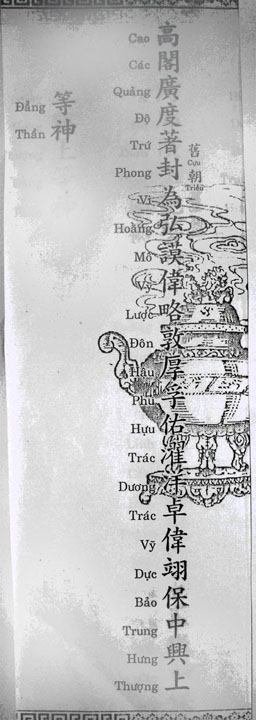 舊朝
Cựu Triều
高閣廣度著封為弘謨偉略敦厚孚佑濯羊卓偉翊保中興上
Cao Các Quảng Độ Trứ Phong Vi Hoằng Mô Vỹ Lược Đôn Hậu Phu Hựu Trác Dương Trác Vỹ Dực Bảo Trung Hưng Thượng
等神
Đẳng Thần